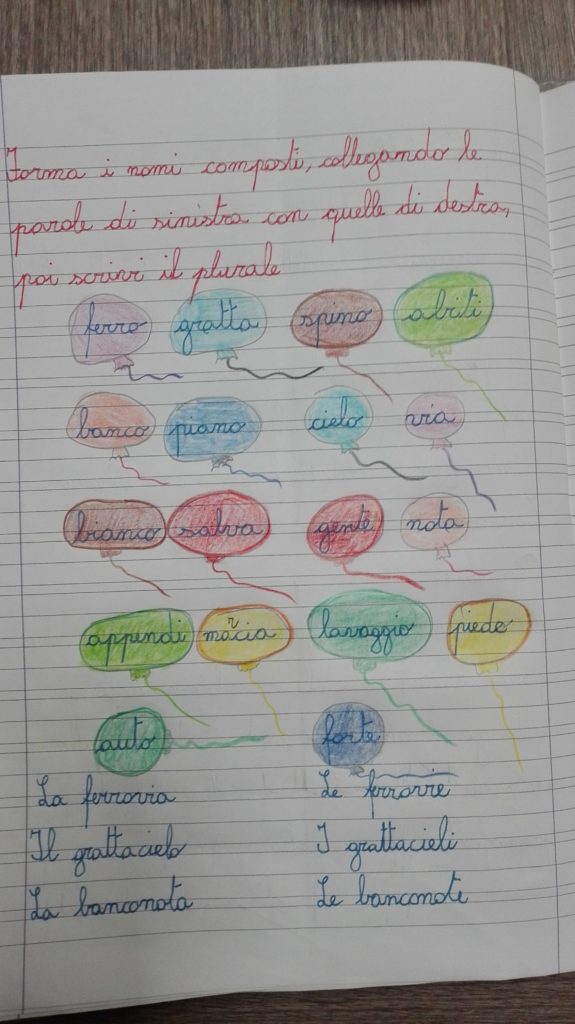 Forma i nomi composti, collegando le
parole di sinistra con quelle di destra,
poi scrivi il plurale
ferro gratta spino abiti
banco piano cielo via
bianco salva gente nota
appendi marcia lavaggio piede
auto forte
La ferrovia Le ferrovie
Il grattacielo I grattacieli
La banconota Le banconote